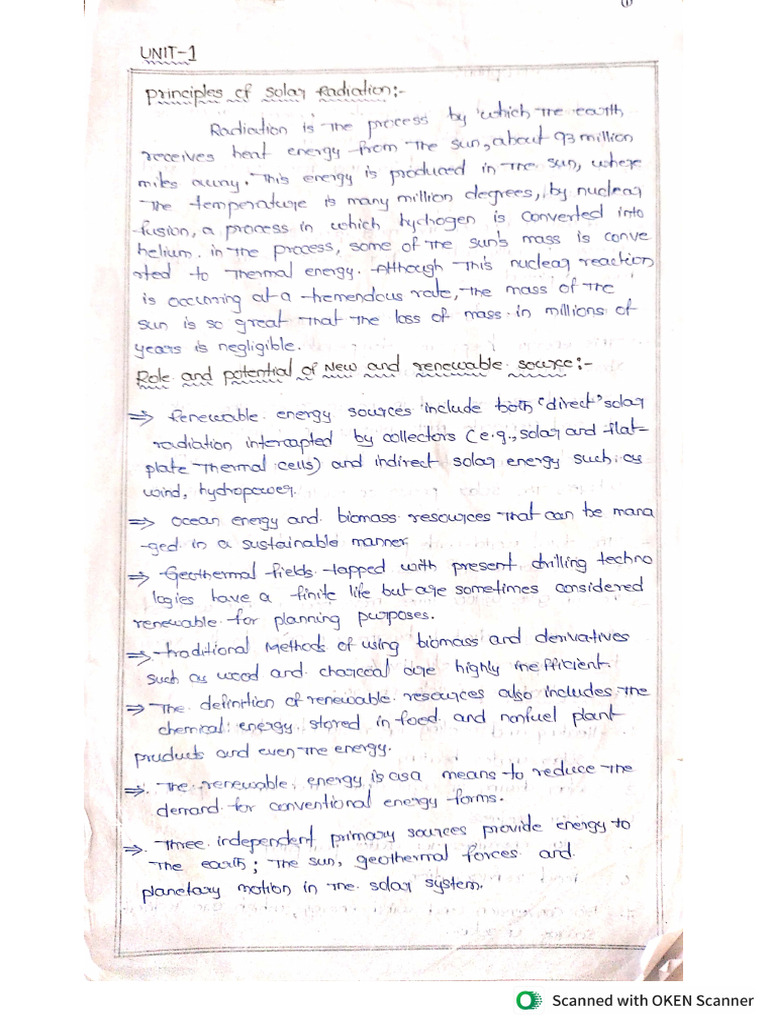 1
UNIT-1
Principles of Solar Radiation:-
Radiation is the process by which the earth
receives heat energy from the sun, about 93 million
miles away. This energy is produced in the sun, where
the temperature is many million degrees, by nuclear
fusion, a process in which hydrogen is converted into
helium. in the process, some of the sun's mass is conve
rted to thermal energy. Although this nuclear reaction
is occuring at a tremendous rate, the mass of the
sun is so great that the loss of mass in millions of
years is negligible.
Role and potential of New and renewable source:-
⇒ Renewable energy sources include both 'direct' solar
radiation intercapted by collectors (e.g., solar and flat-
plate thermal cells) and indirect solar energy such as
wind, hydropower.
⇒ ocean energy and biomass resources that can be mana
-ged in a sustainable manner
⇒ Geothermal fields tapped with present drilling techno
logies have a finite life but are sometimes considered
renewable for planning purposes.
⇒ traditional Methods of using biomass and derivatives
such as wood and charcoal are highly inefficient.
⇒ The definition of renewable resources also includes the
chemical energy stored in food and nonfuel plant
products and even the energy.
⇒ The renewable energy is as a means to reduce the
demand for conventional energy forms.
⇒ Three independent primary sources provide energy to
the earth; the sun, geothermal forces and
planetary motion in the solar system.
Scanned with OKEN Scanner